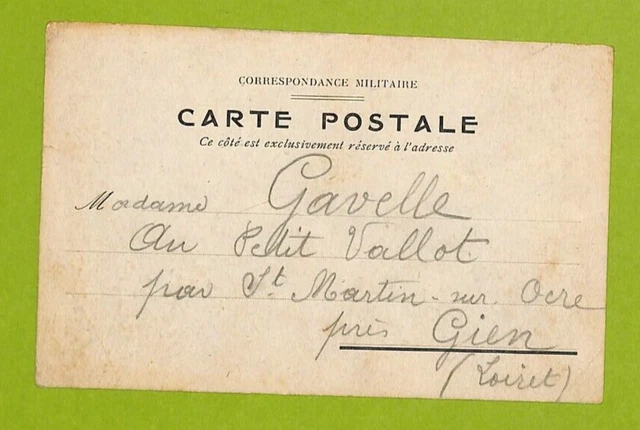 CORRESPONDANCE MILITAIRE
CARTE POSTALE
Ce côté est exclusivement réservé à l'adresse
Madame Gavelle
Au Petit Vallot
par St Martin-sur Ocre
près Gien
(Loiret)